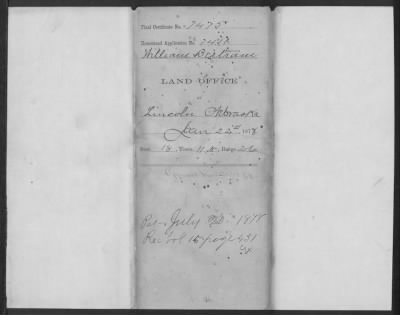 Final Certificate No. 7475
Homestead Application No.
William Bertram
LAND OFFICE
Lincoln Nebraska
Jan 22nd 1878
Sect. 18, Town. 11 N, Range
Pat July 1878
Rec Vol 15 page 431